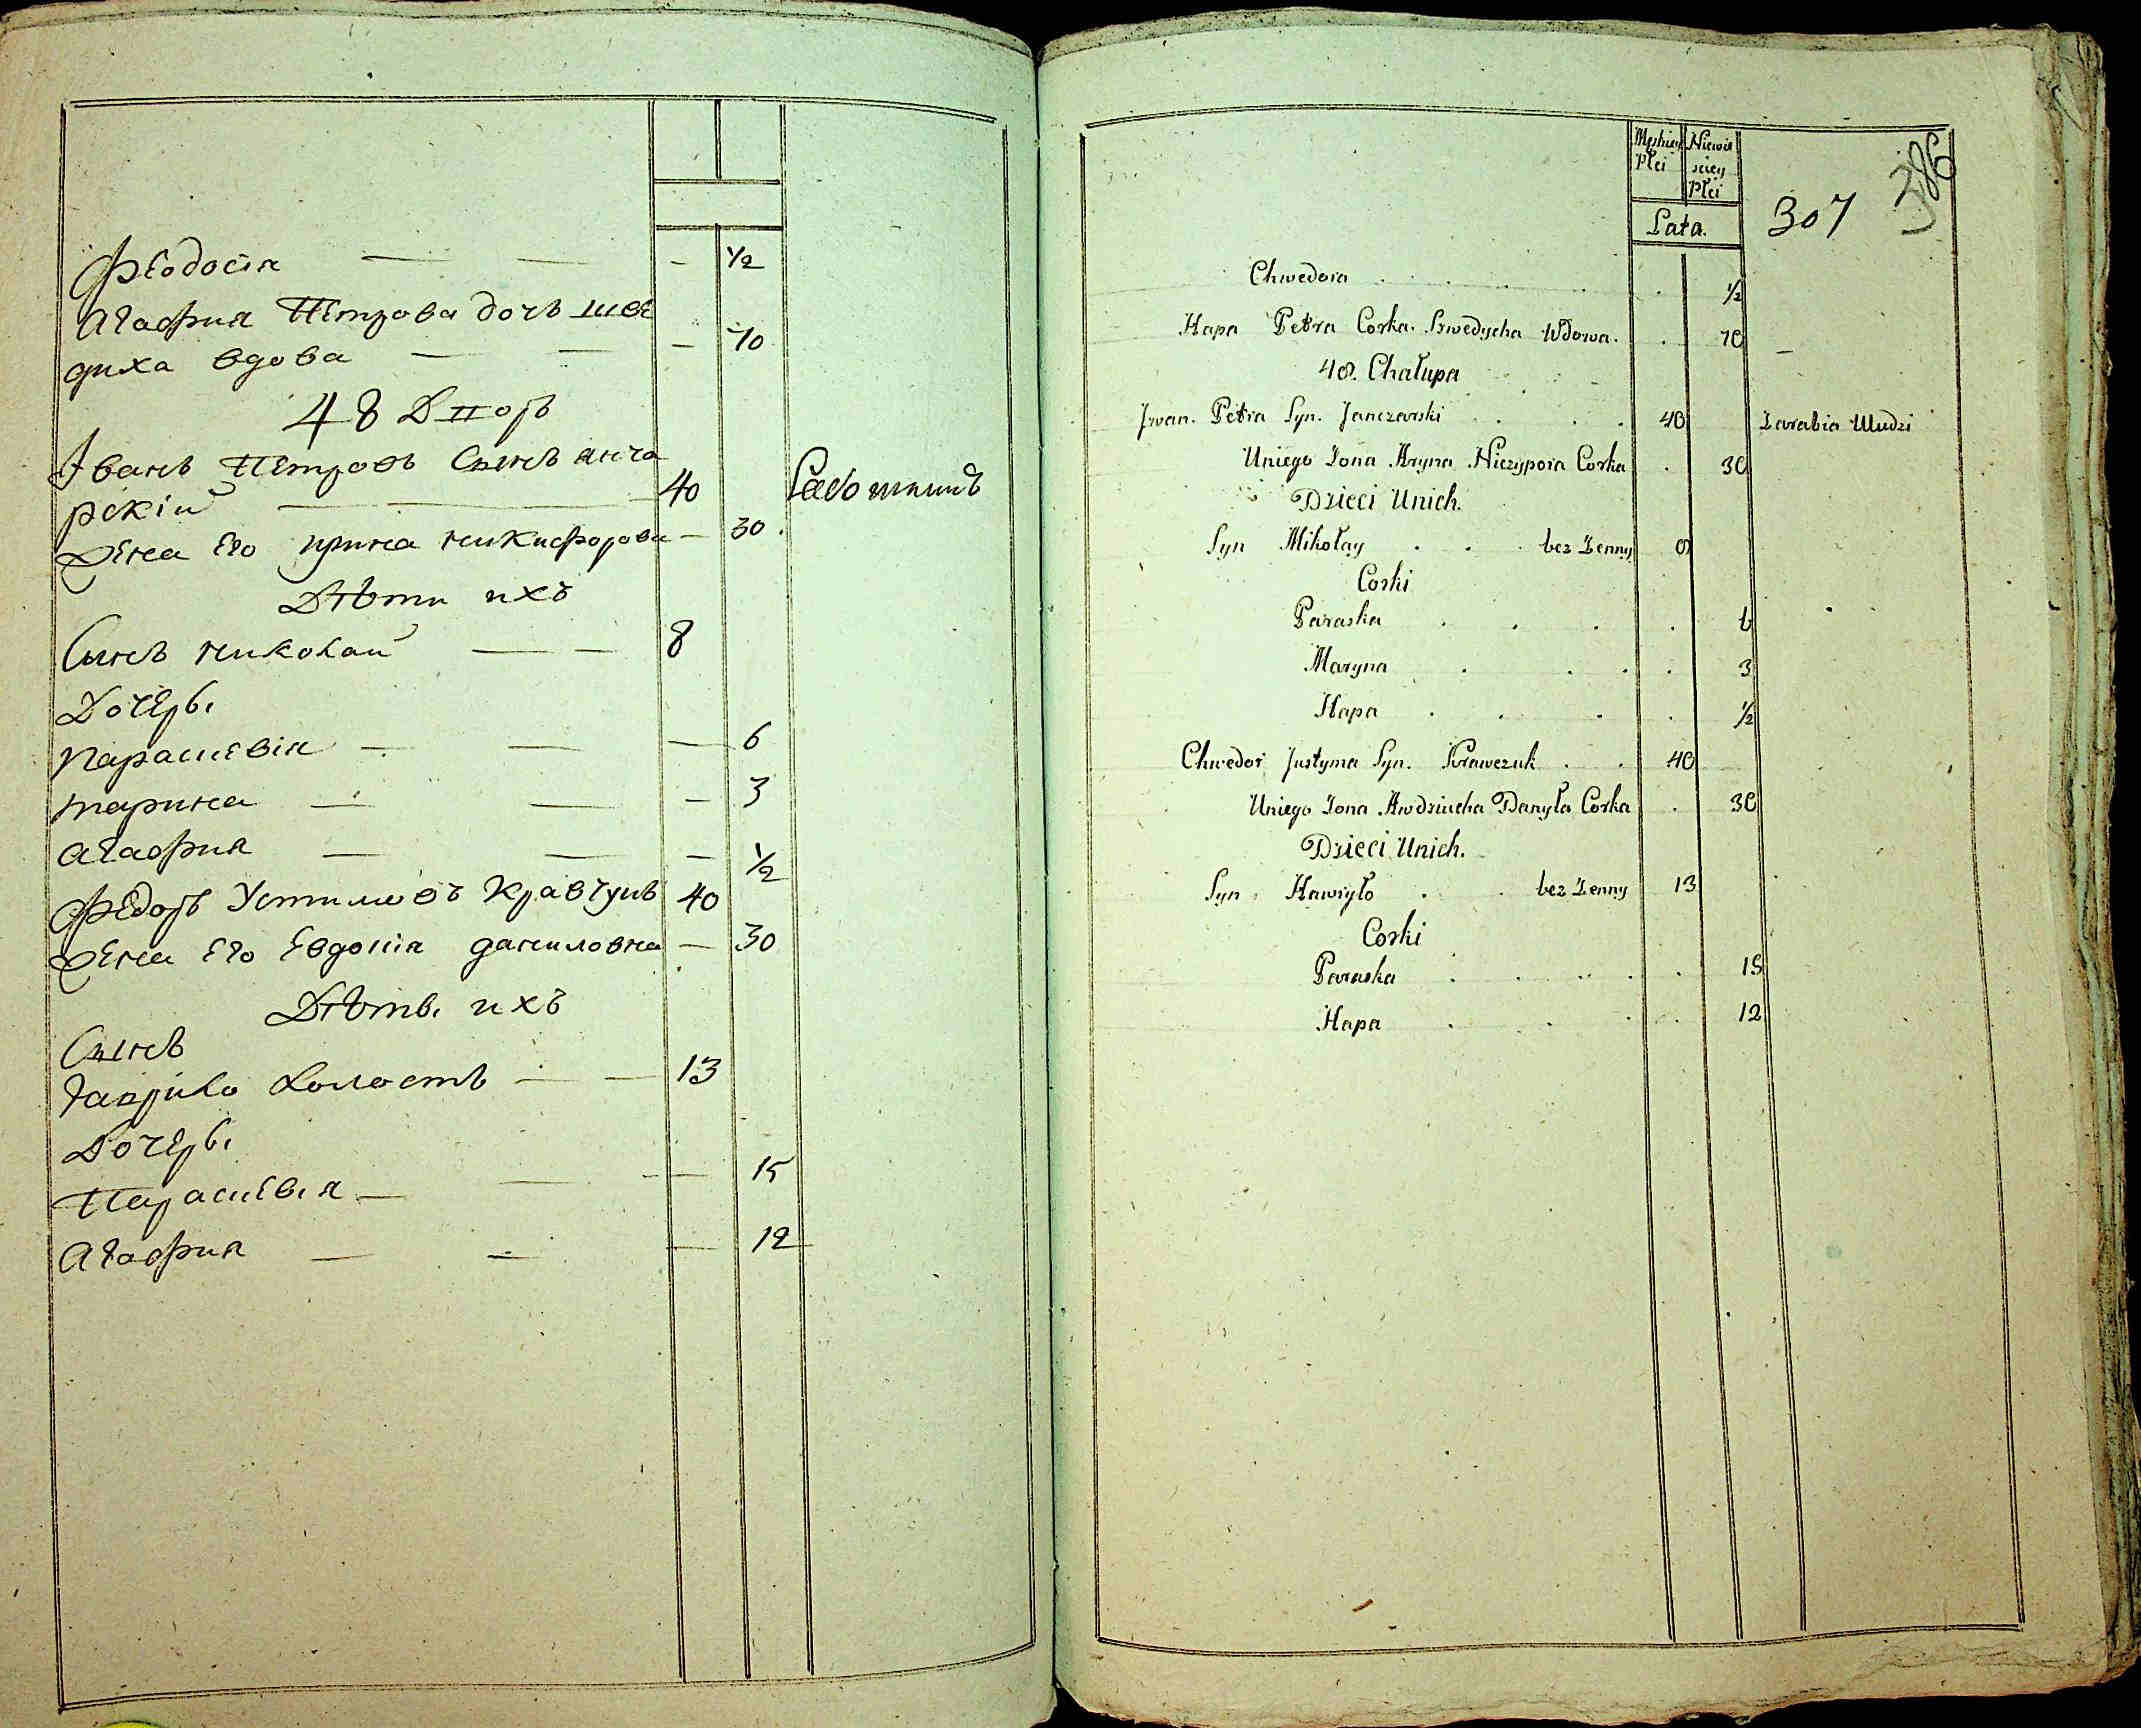 Феодосія — — — 1/2
Агафия Петрова дочь шве
диха вдова — — — 70
48 Дворъ
Іванъ Петровъ Сынъ янча
рскій — 40 Работникъ
Жена Его ирина никифорова — 30
Дѣти ихъ
Сынъ николай — — 8
Дочерь
парасцевія — — — 6
марина — — — 3
агафия — — — 1/2
Федоръ Устимовъ кравчукъ 40
Жена Его Евдокія даниловна — 30
Дѣть ихъ
Сынъ
гаврило холостъ — — 13
Дочерь
Парасцевія — — — 15
Агафия — — — 12
Męskiey Płci Niewie
sciey
Płci
Lata.
307
386
Chwedora . . . . . 1/2
Hapa Petra Corka. Szwedycha Wdowa. . 70
48. Chałupa
Jwan. Petra Syn. Janczarski . . . . 40 Zarabia Uludzi
Uniego Żona Aryna Niczypora Corka . 30
Dzieci Unich.
Syn Mikołay . . bez Żenny 8
Corki
Paraska . . . . 6
Maryna . . . . 3
Hapa . . . . 1/2
Chwedor Justyma Syn. Krawczuk . . 40
Uniego Żona Awdziucha Danyła Corka . 30
Dzieci Unich.
Syn Hawryło . . bez Żenny 13
Corki
Paraska . . . . 15
Hapa . . . . 12